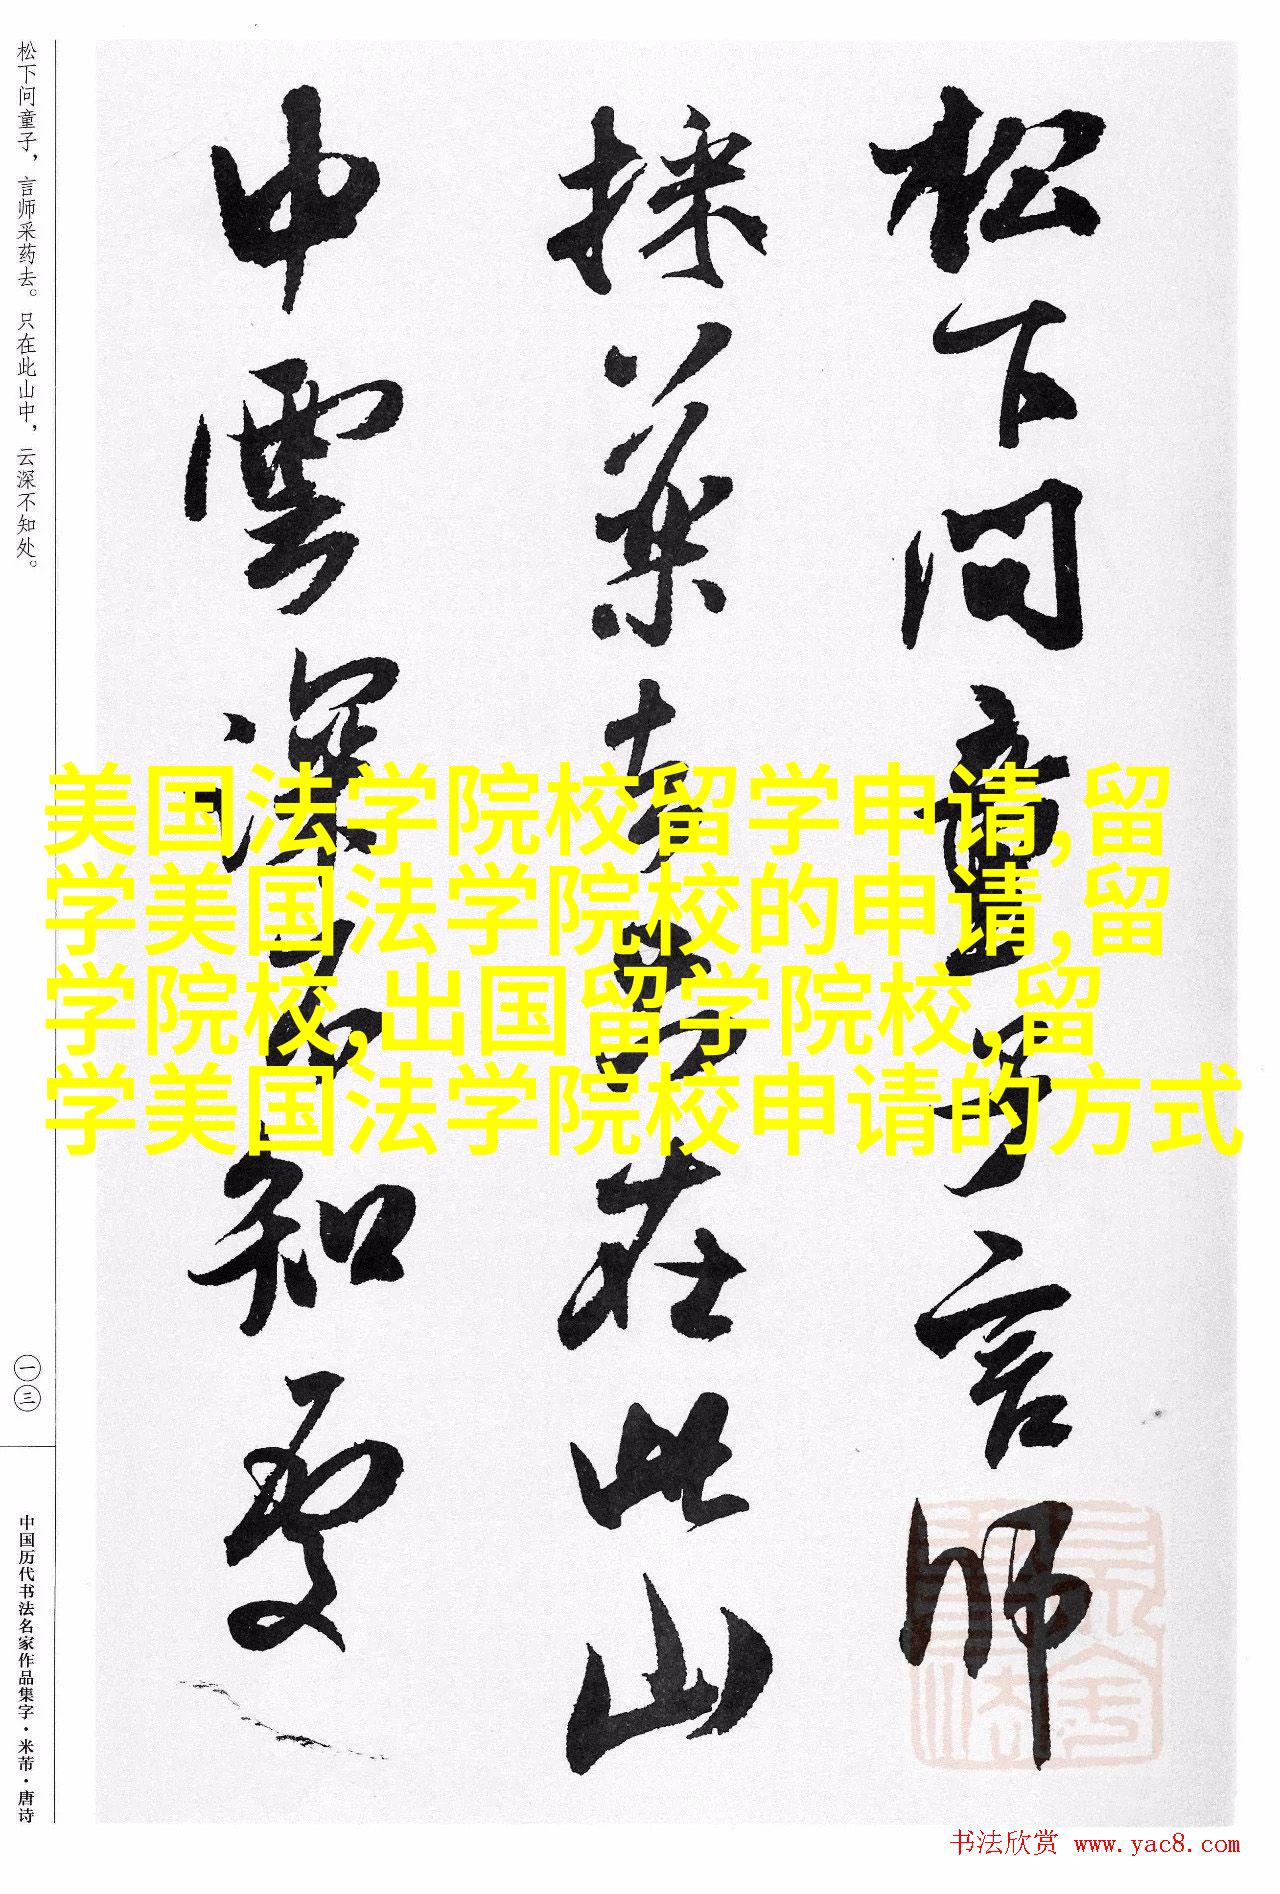 松下问童子，言师采药去。只在此山中，云深不知处。
松下问童子言师
採药去只在此山
中雲深不知處
美国法学院校留学申请,留
学美国法学院校的申请,留
学院校,出国留学院校,留
学美国法学院校申请的方式
一三
中国历代书法名家作品集字·米芾·唐诗
书法欣赏 www.yac8.com